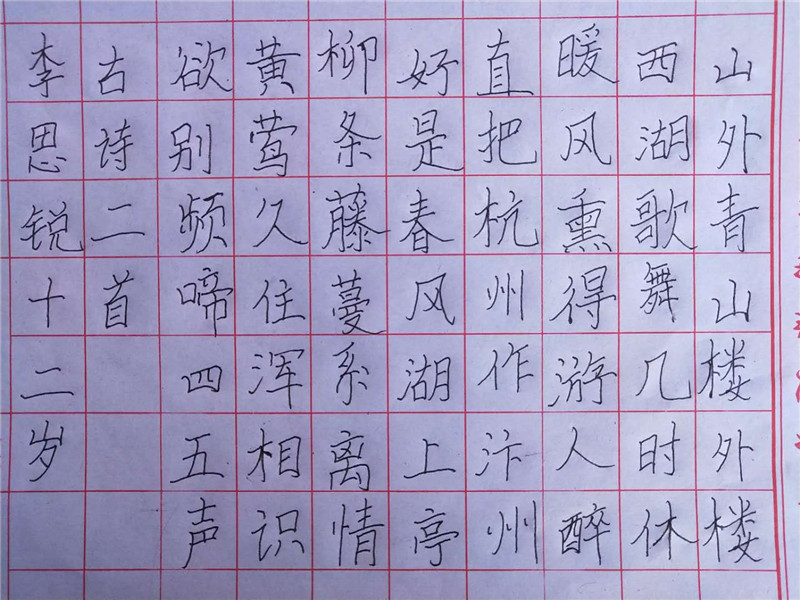 山外青山楼外楼
西湖歌舞几时休
暖风熏得游人醉
直把杭州作汴州
好是春风湖上亭
柳条藤蔓系离情
黄莺久住浑相识
欲别频啼四五声
古诗二首
李思锐十二岁